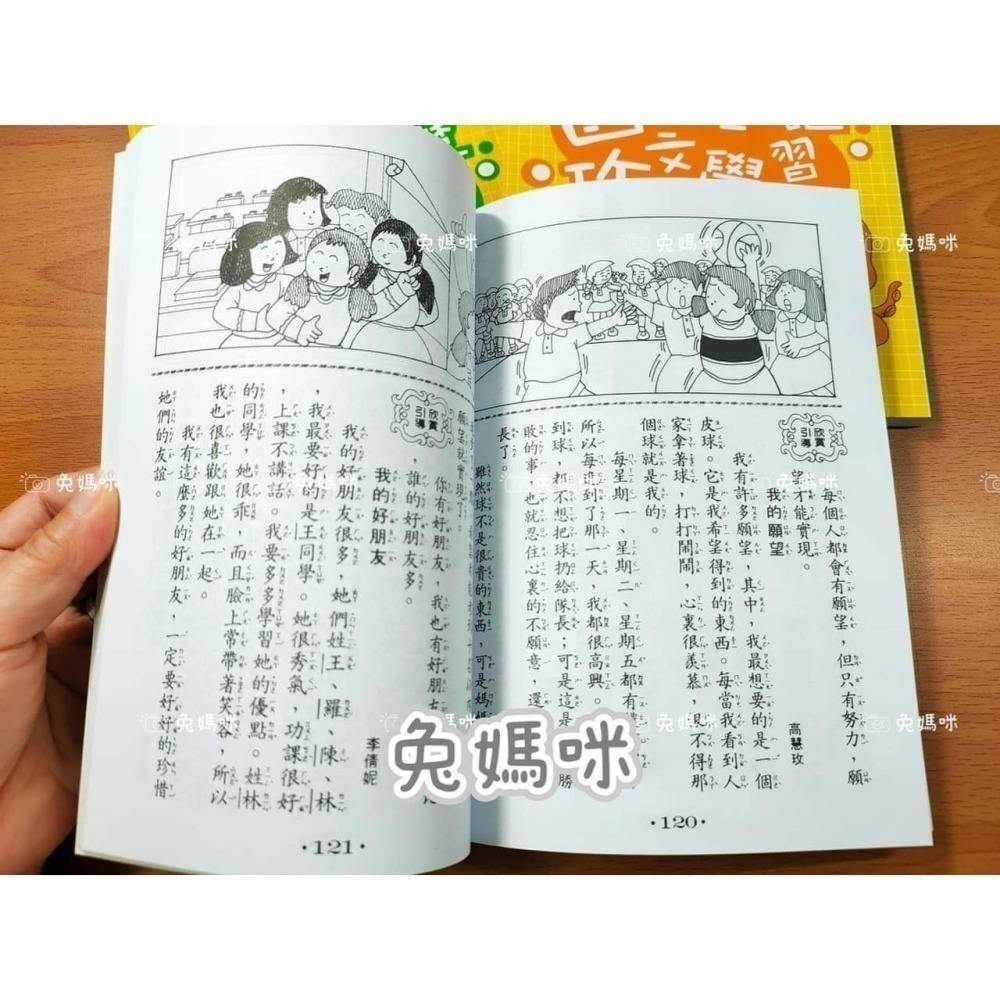 文學習
兔媽咪
兔媽咪
兔媽咪
兔媽咪
欣賞
引導
每個人都會有願望，但只有努力，願
望才能實現。
我的願望
高慧玫
我有許多願望，其中，我最想要的是一個
皮球。它是我希望得到的東西。每當我看到人
家拿著球，打打鬧鬧，心裏很羨慕，恨不得那
個球就是我的。
每星期一、星期二、星期五都有
所以每遇到了那一天，我都很高興。
到球，都不想把球扔給隊長；可是這是
勝
敗的事，也就忍住心裏的不願意，還
長了。
雖然球不是很貴的東西，可是媽
•120•
願望就實現了。
欣賞
引導
你有好朋友，我也有好朋
誰的好朋友多。
我的好朋友
李倩妮
我的好朋友很多，她們姓王、羅、陳、林
，我最要好的是王同學。她很秀氣，功課很好
，上課不講話。我要多多學習她的優點。姓林
的同學，她很乖，而且臉上常帶著笑容，所以
我也很喜歡跟她在一起。
我有這麼多的好朋友，一定要好好的珍惜
她們的友誼。
•121•
兔媽咪
兔媽咪
兔媽咪
兔媽咪
兔媽咪
兔媽咪
兔媽咪
兔媽咪
兔媽咪